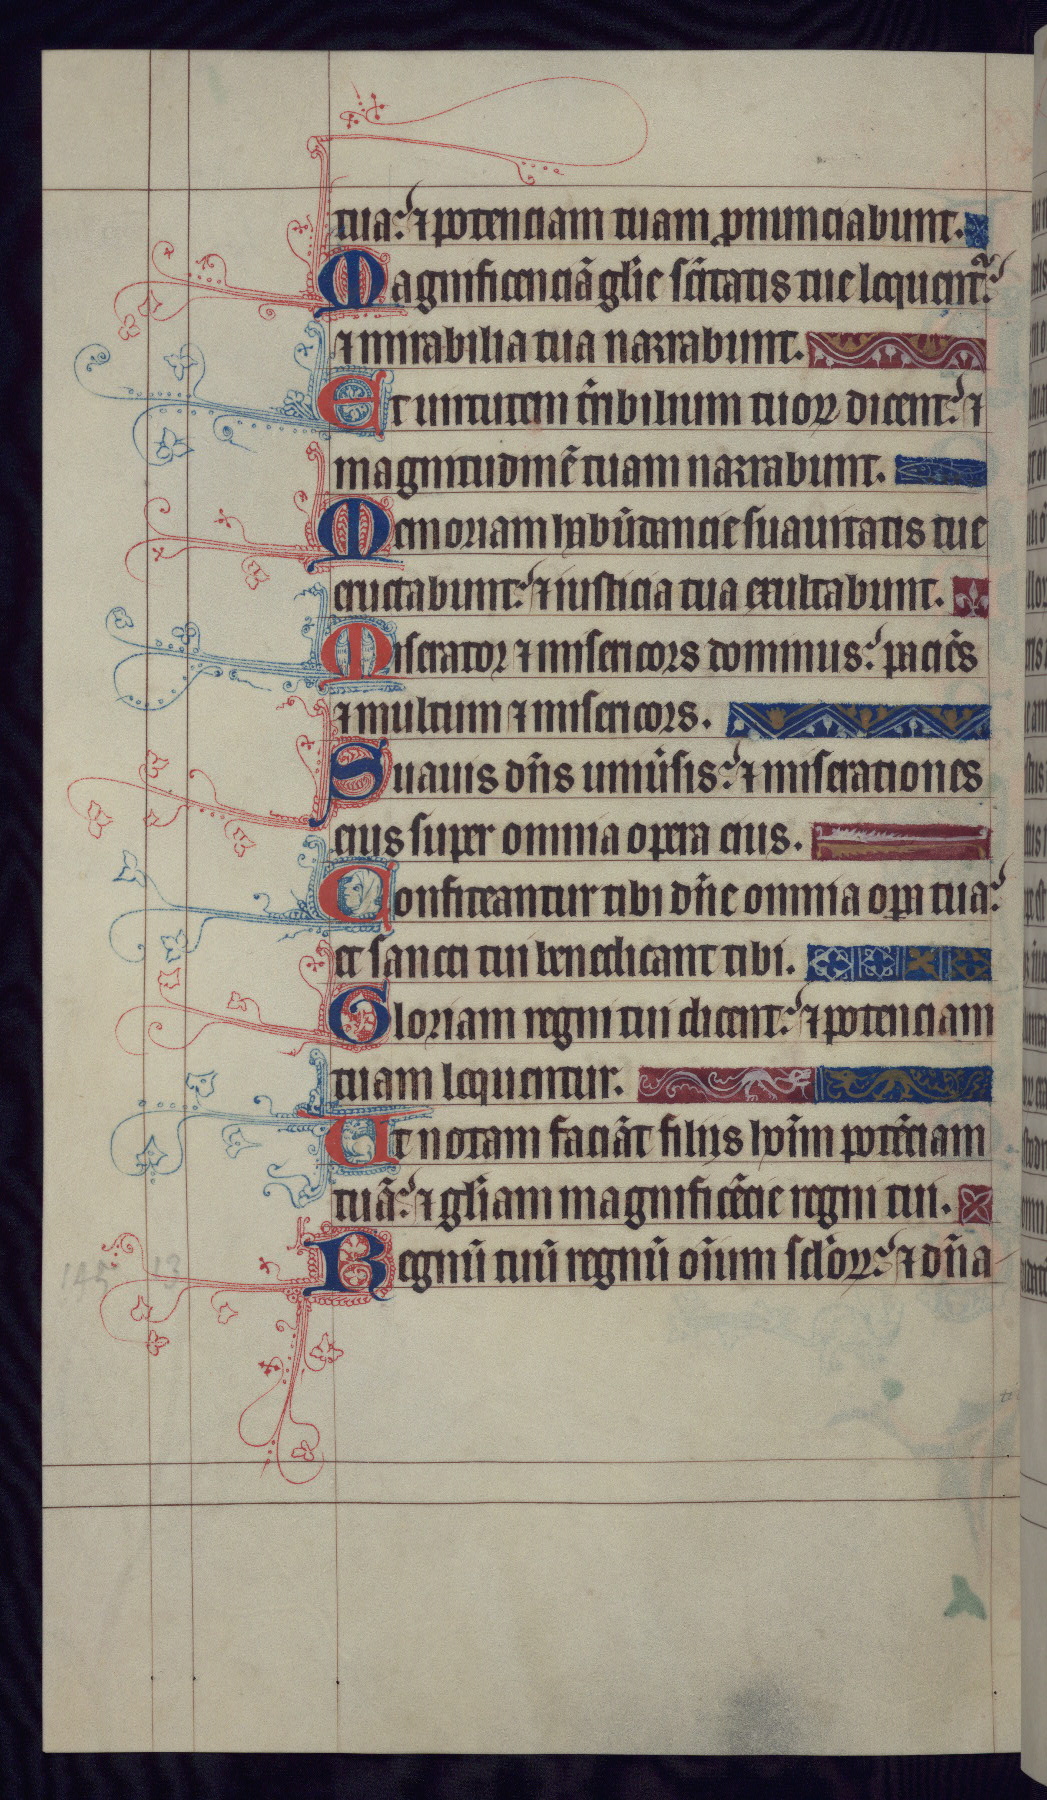 tua: ⁊ potenciam tuam ꝓnunciabunt.
Magnificenciā glīe sc̄itatis tue loquentʳ:
⁊ mirabilia tua narrabunt.
Et uirtutem t̄ribilium tuoꝝ dicent: ⁊
magnitudinē tuam narrabunt.
Memoriam habūdancie suauitatis tue
eructabunt: ⁊ iusticia tua exultabunt.
Miserator ⁊ misericors dominus: paciēs
⁊ multum ⁊ misericors.
Suauis dn̄s uniūsis: ⁊ miserationes
eius super omnia opera eius.
Confiteantur tibi dn̄e omnia oꝑa tua:
et sancti tui benedicant tibi.
Gloriam regni tui dicent: ⁊ potenciam
tuam loquentur.
Ut notam faciāt filiis hoīm potēciam
tuā: ⁊ glīam magnificēcie regni tui.
Regnū tuū regnū oīum sclōꝝ: ⁊ dn̄a
145 13